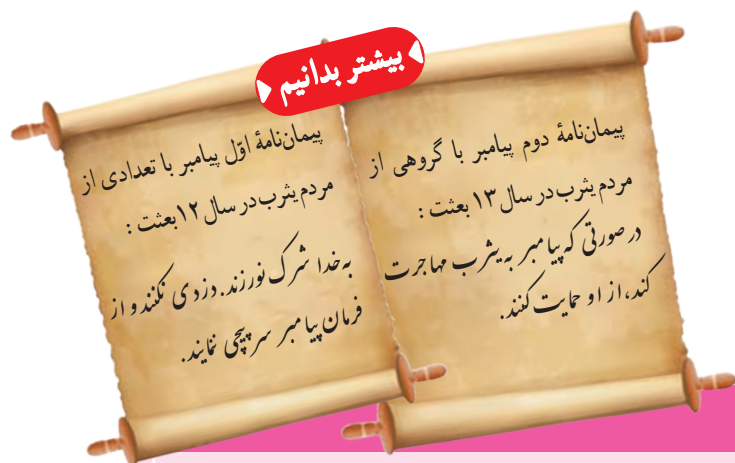 بیشتر بدانیم
پیمان‌نامهٔ دوم پیامبر با گروهی از
مردم یثرب در سال ۱۳ بعثت :
در صورتی که پیامبر به یثرب مهاجرت
کند، از او حمایت کنند.
پیمان‌نامهٔ اوّل پیامبر با تعدادی از
مردم یثرب در سال ۱۲ بعثت :
به خدا شرک نورزند. دزدی نکنند و از
فرمان پیامبر سرپیچی ننمایند.